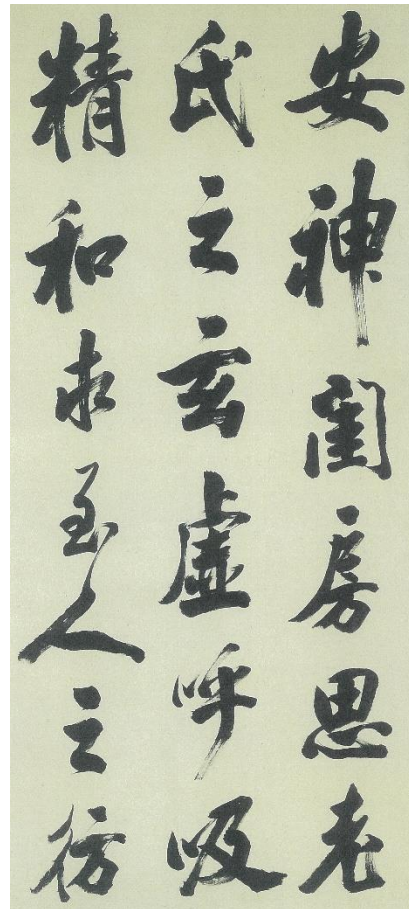 安神闺房思老
氏之玄虚呼吸
精和求至人之彷